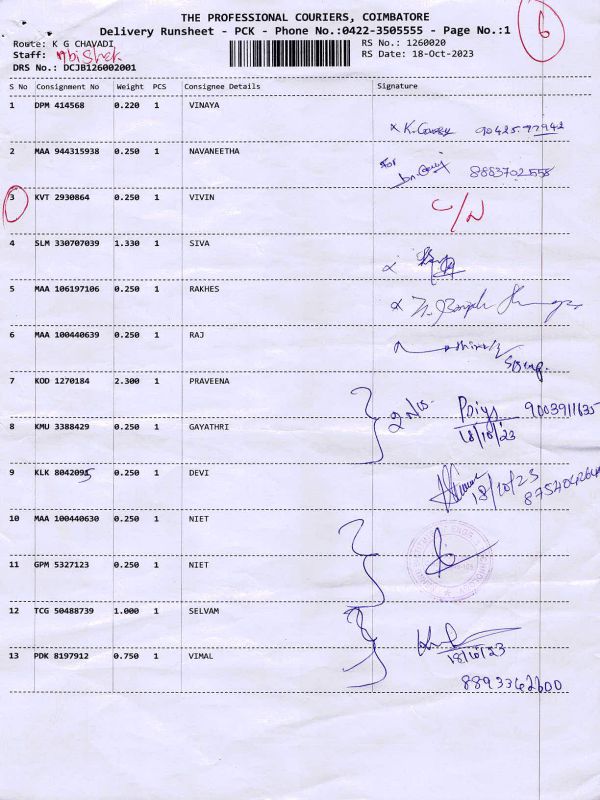 THE PROFESSIONAL COURIERS, COIMBATORE
Delivery Runsheet - PCK - Phone No.:0422-3505555 - Page No.:1
6
Route: K G CHAVADI
RS No.: 1260020
Staff: Abishek
RS Date: 18-Oct-2023
DRS No.: DCJB126002001
S No Consignment No Weight PCS Consignee Details Signature
1 DPM 414568 0.220 1 VINAYA
90425 77942
2 MAA 944315938 0.250 1 NAVANEETHA
for 8883702558
3 KVT 2930864 0.250 1 VIVIN
4 SLM 330707039 1.330 1 SIVA
5 MAA 106197106 0.250 1 RAKHES
6 MAA 100440639 0.250 1 RAJ
7 KOD 1270184 2.300 1 PRAVEENA
2 Nos. 9003911635
18/10/23
8 KMU 3388429 0.250 1 GAYATHRI
9 KLK 80420935 0.250 1 DEVI
18/10/23
10 MAA 100440630 0.250 1 NIET
11 GPM 5327123 0.250 1 NIET
12 TCG 50488739 1.000 1 SELVAM
18/10/23
13 PDK 8197912 0.750 1 VIMAL
8893362600